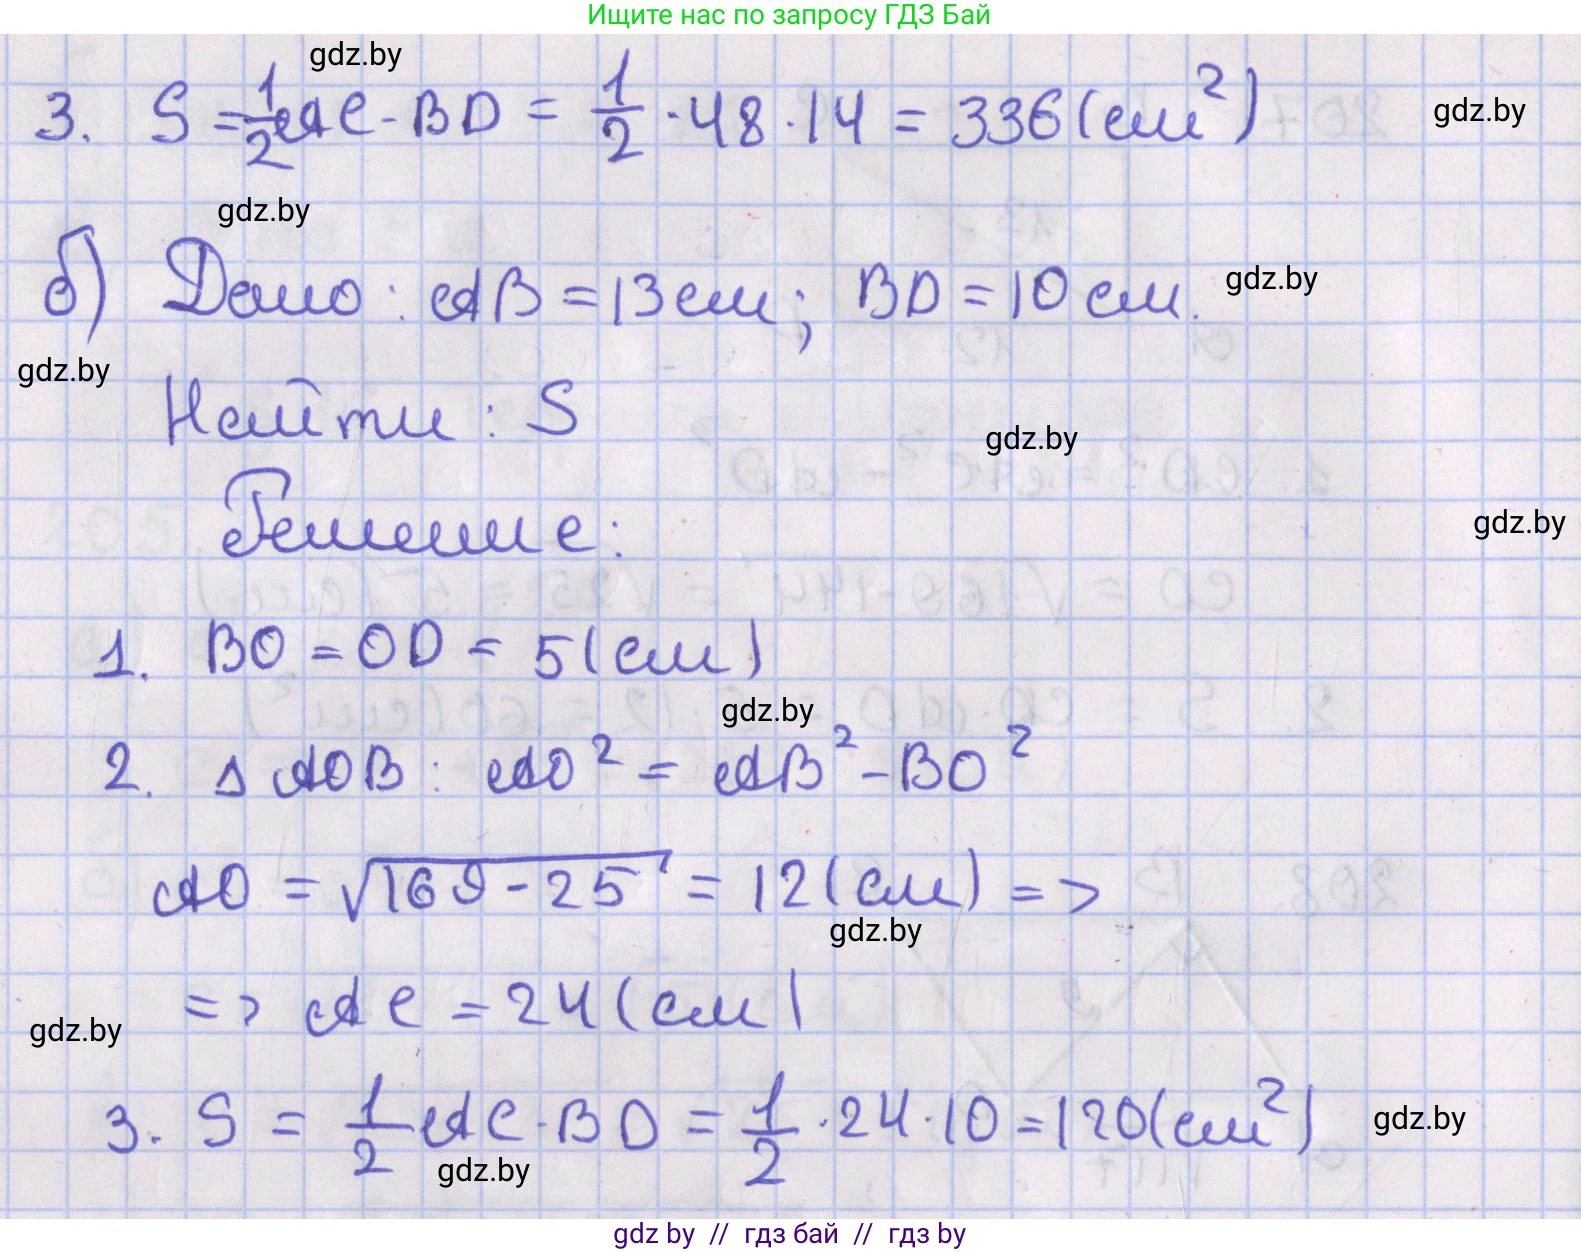 Ищите нас по запросу ГДЗ Бай
gdz.by
3. S = 1/2 AC · BD = 1/2 · 48 · 14 = 336 (см²)
gdz.by
gdz.by
б) Дано: AB = 13 см; BD = 10 см.
gdz.by
gdz.by
Найти: S
gdz.by
Решение:
gdz.by
1. BO = OD = 5 (см)
gdz.by
2. Δ AOB: AO² = AB² - BO²
AO = √169 - 25 = 12 (см) =>
gdz.by
=> AC = 24 (см)
gdz.by
3. S = 1/2 AC · BD = 1/2 · 24 · 10 = 120 (см²)
gdz.by
gdz.by
gdz by // гдз бай // гдз by